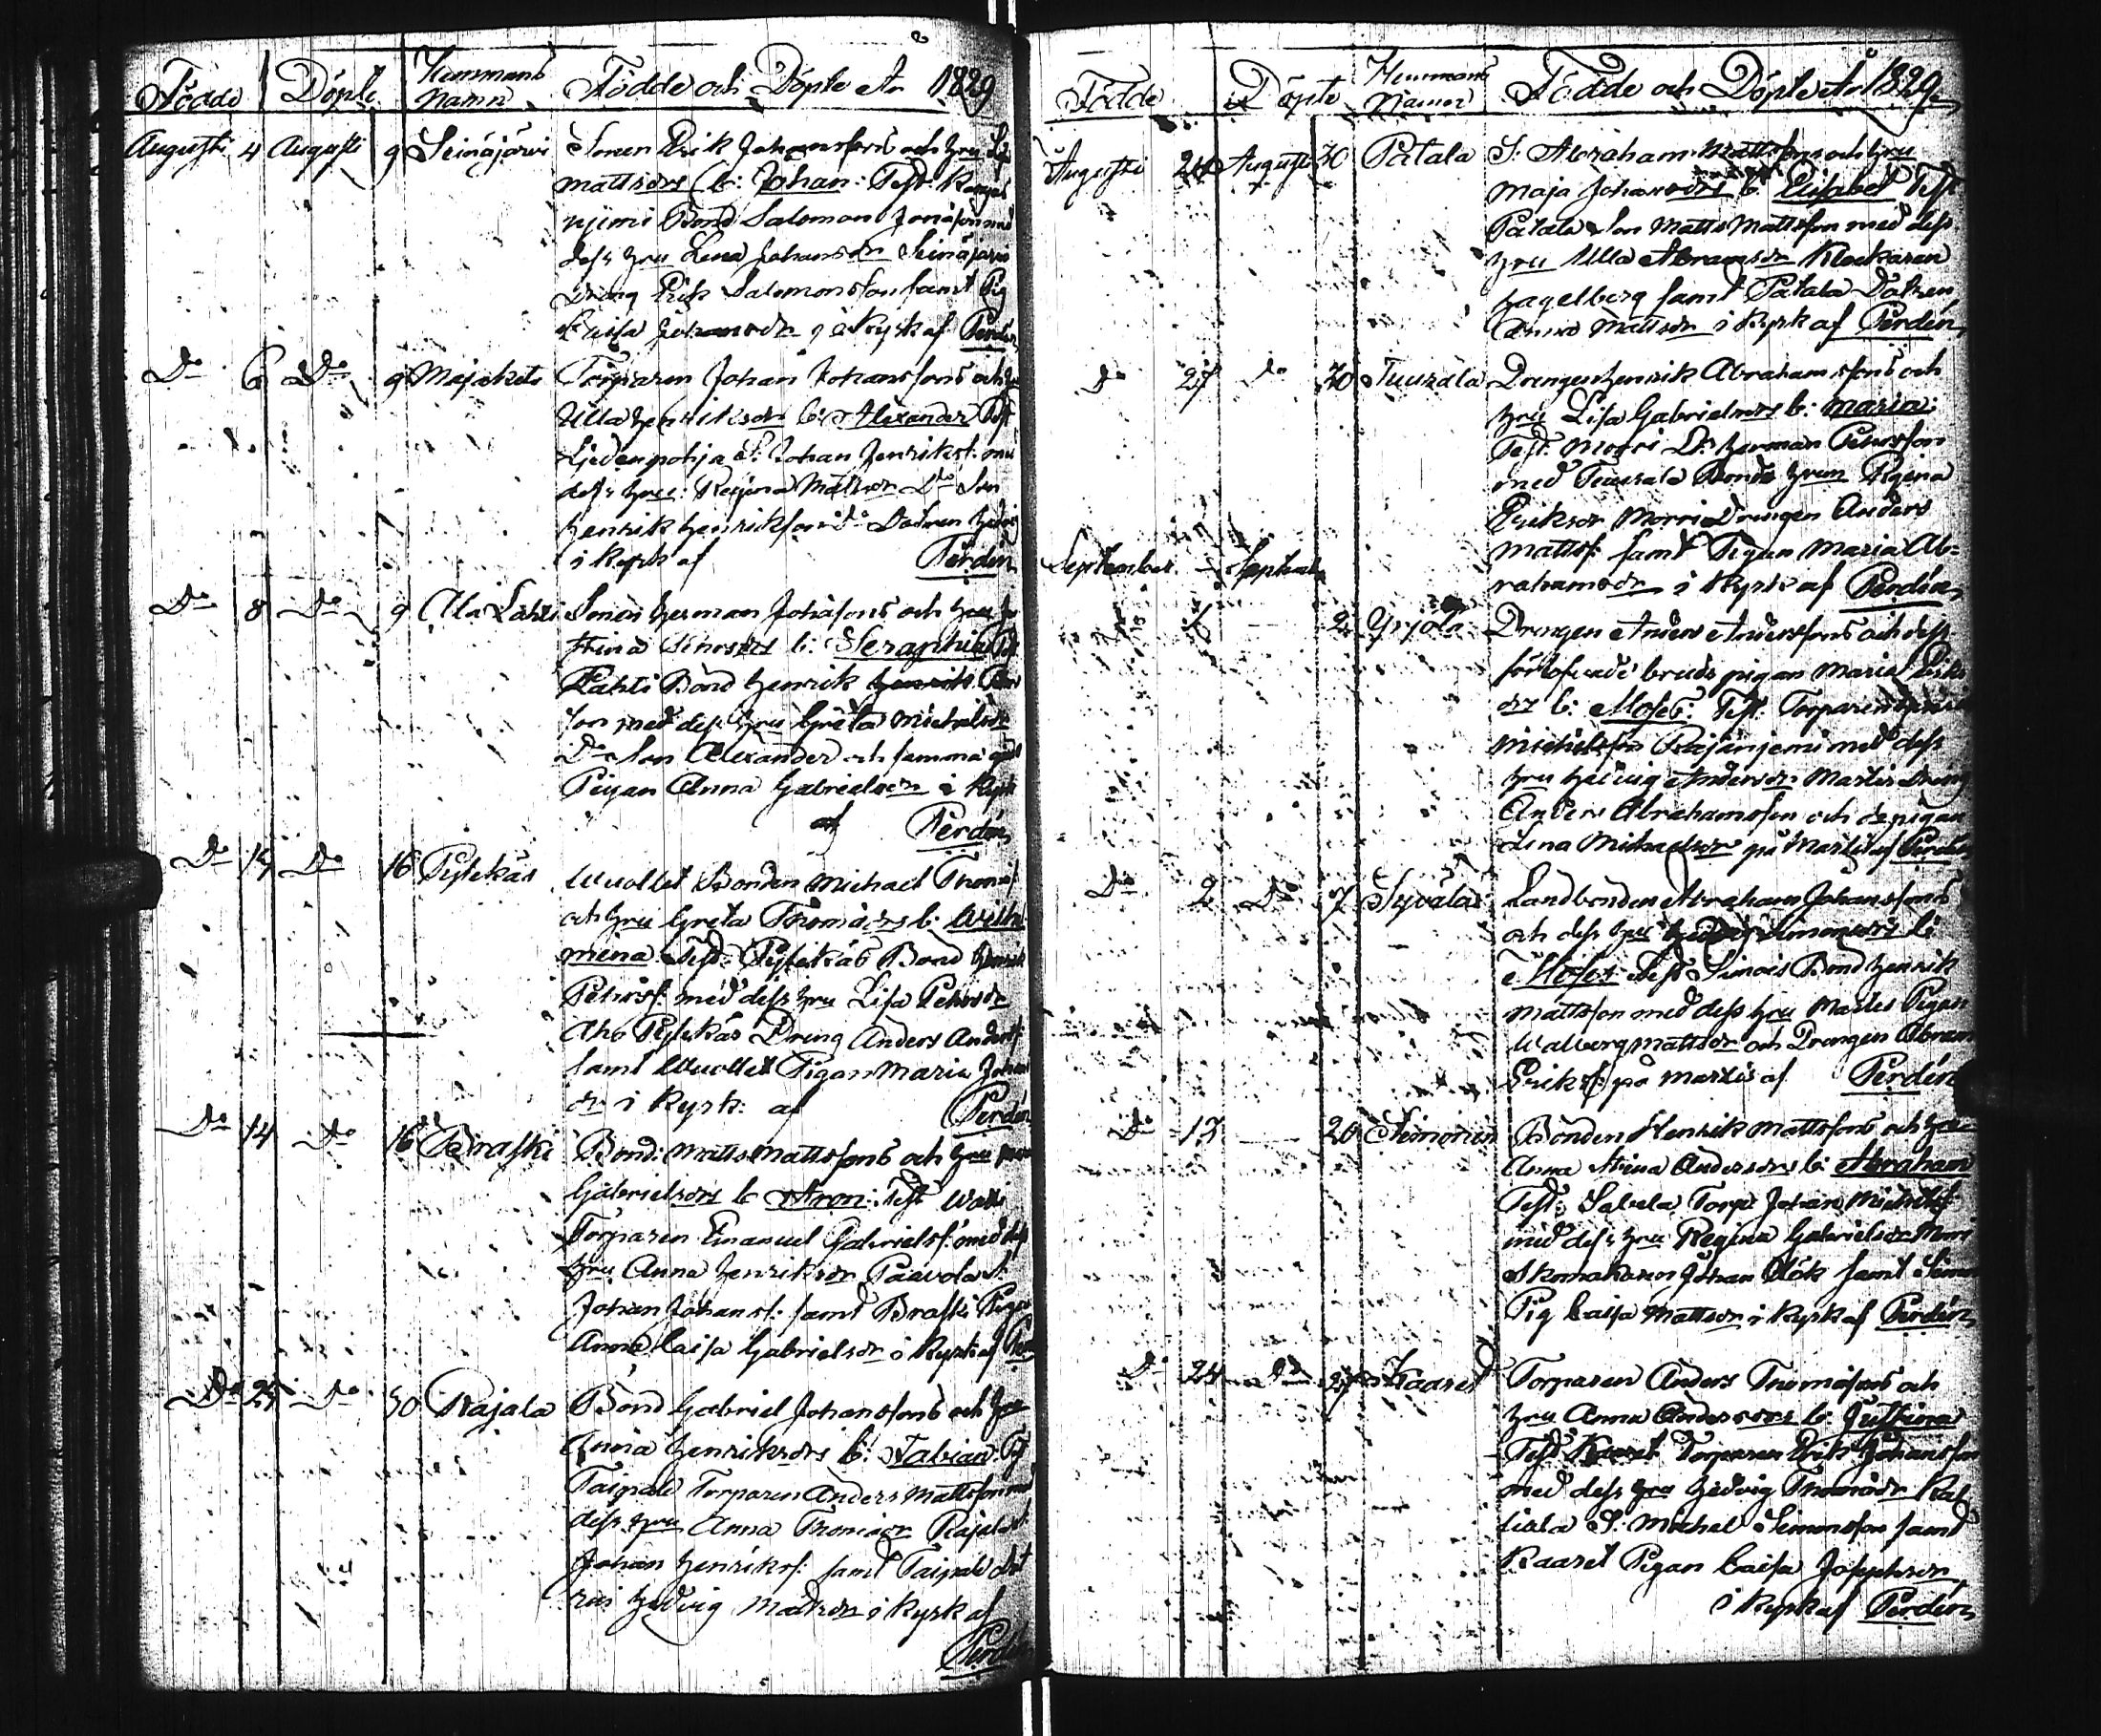 Födde Döpte Hemmans Namn Födde och Döpte År 1829
Augusti 4 Augusti 9 Seinäjärvi Sonen Erik Johanssons och hru
Mattsdrs b: Johan: Test:
njemi Bond Salomon Jonässon med
dess hru Lena Johansdr Seinäjärvi
Dräng Erik Salomonsson samt Pig
Johansdr i Kyrk af Perdén
Do 6 Do 9 Majakets Torparen Johan Johanssons och hru
Ulla Henriksdr b: Alexander Test
S: Johan Henrikss: med
dess hru: Regina Mattsdr Do Son
Henrik Henriksson do Dottren
i Kyrk af Perdén
Do 8 Do 9 Ala Lahti Sonen Herman Johässons och hru
stina Simosdrs b: Seraphia Test
Lahti Bond Henrik
son med dess hru Greta Michelsdr
Do Son Alexander och samma
Pigan Anna Gabrielsdr i Kyrk
af Perdén
Do 14 Do 16 Pylekäs Wuollet Bonden Michael Thomæs
och hru Greta Thomædrs b: Wilhel
mina Test: Pylekäs Bond Henrik
Pehrss: med dess hru Lisa Pehrsdr
Aho Pylekäs Dräng Anders Anderss
samt Wuollet Pigan Maria Johans
dr i Kyrk: af Perdén
Do 14 Do 16 Braski Bond: Matts Mattssons och hru
Gabrielsdrs b Aron: Test
Torparen Emanuel Gabrielss: med dess
hru Anna Henriksdr Paavola S:
Johan Johanss: samt Braski Pigan
Anna Caisa Gabrielsdr i Kyrk af Perdén
Do 25 Do 30 Rajala Bond Gabriel Johanssons och hru
Anna Henriksdrs b: Fabian: Test
Taipale Torparen Anders Mattsson med
dess hru Anna Thomædr Rajala
Johan Henrikss: samt Taipale Dot
ren Hedvig Mattsdr i Kyrk af
Perdén
Födde Döpte Hemmans Namn Födde och Döpte År 1829
Augusti 24 Augusti 30 Patala S: Abraham Mattssons och hru
Maja Johansdrs b: Elisabet Test
Patala Son Matts Mattsson med dess
hru Ulla Abramsdr Klockaren
Hagelberg samt Patala Dottren
Anna Mattsdr i Kyrk af Perdén
Do 27 Do 30 Tuurala Drengen Henrik Abrahamssons och
hru Lisa Gabrielsdrs b: Maria:
Test: Morri Dr: Herman Pehrsson
med Tuurala Bonde hrun Regina
Eriksdr Morri Drengen Anders
Mattss: samt Pigan Maria Ab=
rahamsdr i Kyrk af Perdén
September September
1 2 Yrjölä Drengen Anders Anderssons och dess
förlofvade bruds pigan Maria Eriks
drs b: Moses: Test: Torparen
Michelsson Rajänjemi med dess
hru Hedvig Andersdr Martis Dreng
Anders Abrahamsson och do pigan
Lena Michaelsdr på Martis af Perdén
Do 2 Do 7 Syvälä Landbonden Abraham Johanssons
och dess hru Hedvig Simonsdrs b:
Moses Test Simois Bond Henrik
Mattsson med dess hru Martis Pigan
Walborg Mattsdr och Drengen Abram
Erikss: på Martis af Perdén
Do 13 20 Simonen Bonden Henrik Mattssons och hru
Anna Stina Andersdrs b: Abraham
Test: Sabela Torp: Johan Michelss:
med dess hru Regina Gabrielsdr Morri
Skomakaren Johan Stök samt
Pig Caisa Mattsdr i Kyrk af Perdén
Do 24 Do 27 Kaaret Torparen Anders Thomæsons och
hru Anna Andersdrs b: Justina
Test Kaaret Torparen Erik Johansson
med dess hru Hedvig Thomædr Kal
liala S: Michel Simonsson samt
Kaaret Pigan Caisa Josephsdr
i Kyrk af Perdén